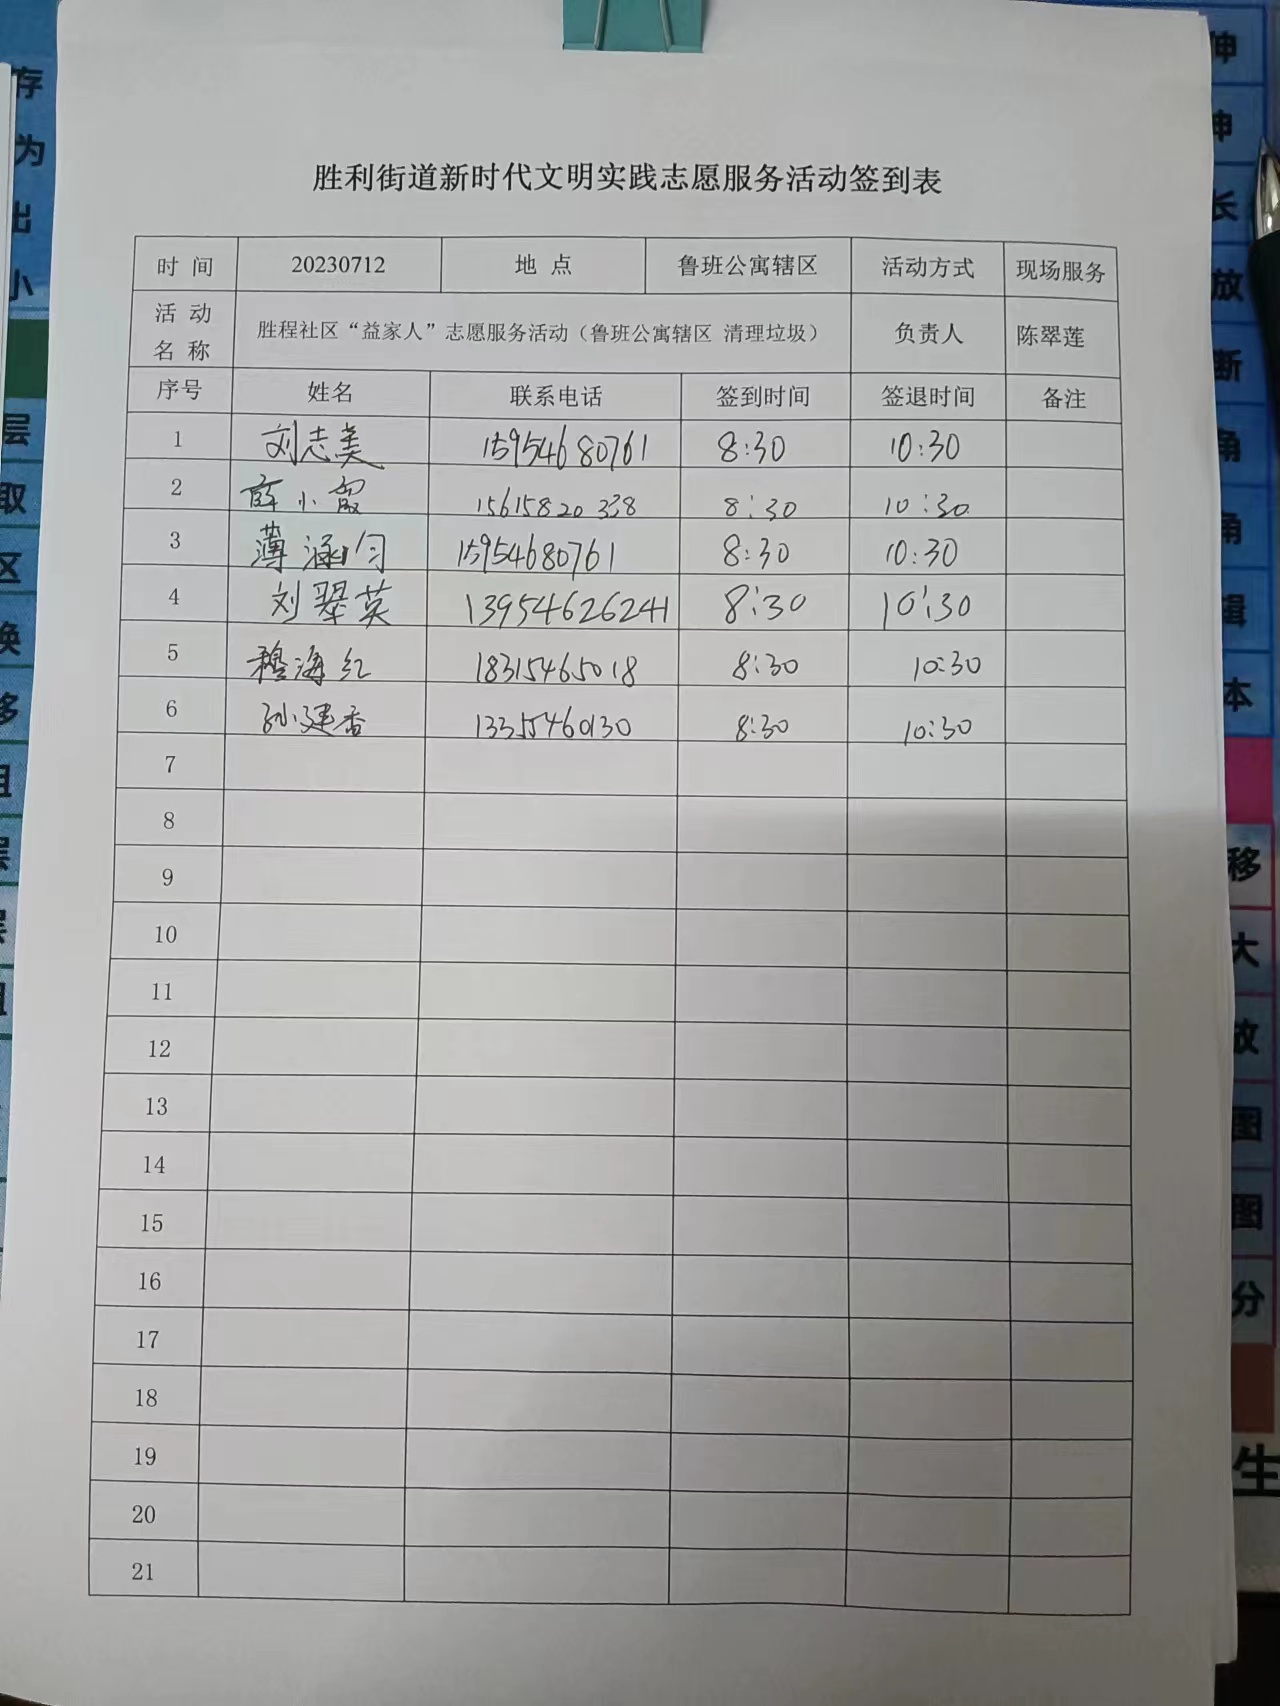 胜利街道新时代文明实践志愿服务活动签到表
时 间 20230712 地 点 鲁班公寓辖区 活动方式 现场服务
活 动 名 称 胜程社区“益家人”志愿服务活动（鲁班公寓辖区 清理垃圾） 负责人 陈翠莲
序号 姓名 联系电话 签到时间 签退时间 备注
1 刘志美 15954680761 8:30 10:30
2 薛小霞 15615820338 8:30 10:30
3 薄涵匀 15954680761 8:30 10:30
4 刘翠英 13954626241 8:30 10:30
5 穆海红 18315465018 8:30 10:30
6 孙建香 13355460130 8:30 10:30
7
8
9
10
11
12
13
14
15
16
17
18
19
20
21
存
为
出
小
层
取
区
换
移
组
层
伸
伸
长
放
断
角
角
辑
本
移
大
放
图
图
分
生